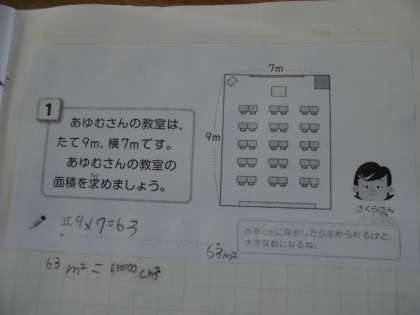 7m
9m
1
あゆむさんの教室は，
たて9m，横7mです。
あゆむさんの教室の
面積を求めましょう。
さくらさん
mをcmになおしたら求められるけど，
大きな数になるな。
式 9×7=63
63m²
63 m² = 630000 cm²